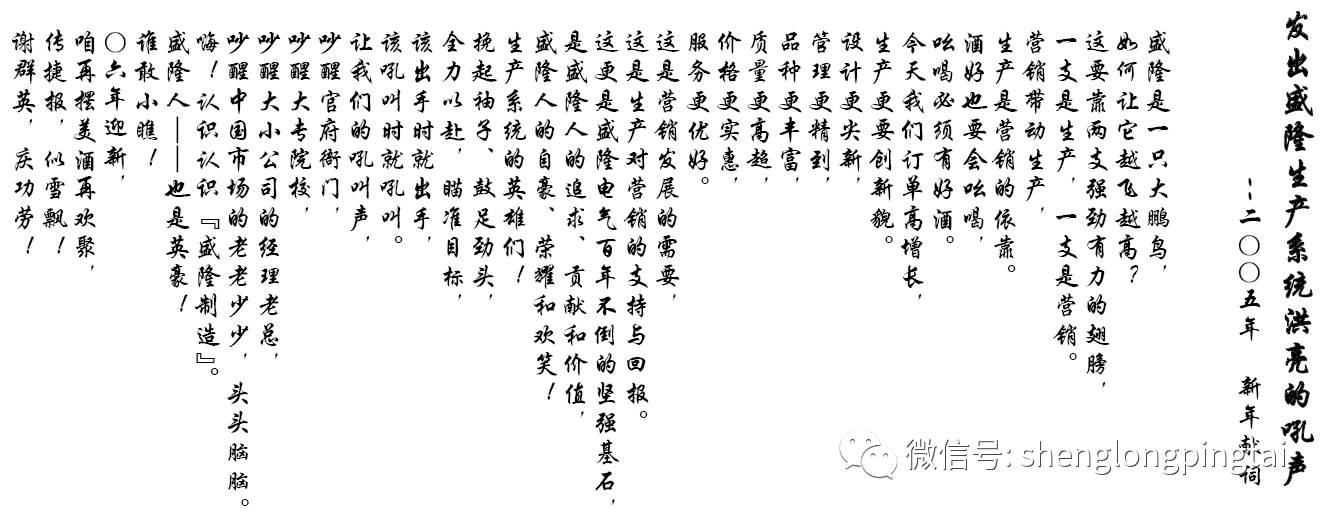 发出盛隆生产系统洪亮的吼声
--二〇〇五年 新年献词
盛隆是一只大鹏鸟，
如何让它越飞越高？
这要靠两支强劲有力的翅膀，
一支是生产，一支是营销。
营销带动生产，
生产是营销的依靠。
吆喝必须有好酒。
酒好也要会吆喝，
今天我们订单高增长，
生产更要创新貌。
设计更尖新，
管理更精到，
品种更丰富，
质量更高超，
价格更实惠，
服务更优好。
这是营销发展的需要，
这是生产对营销的支持与回报。
这更是盛隆电气百年不倒的坚强基石，
是盛隆人的追求、贡献和价值，
盛隆人的自豪、荣耀和欢笑！
生产系统的英雄们！
挽起袖子、鼓足劲头，
全力以赴，瞄准目标，
该出手时就出手，
该吼叫时就吼叫。
让我们的吼叫声，
吵醒官府衙门，
吵醒大专院校，
吵醒大小公司的经理老总，
吵醒中国市场的老老少少，头头脑脑。
嗨！认识认识『盛隆制造』。
盛隆人——也是英豪！
谁敢小瞧！
〇六年迎新，
咱再摆美酒再欢聚，
传捷报，似雪飘！
谢群英，庆功劳！
微信号: shenglongpingtai